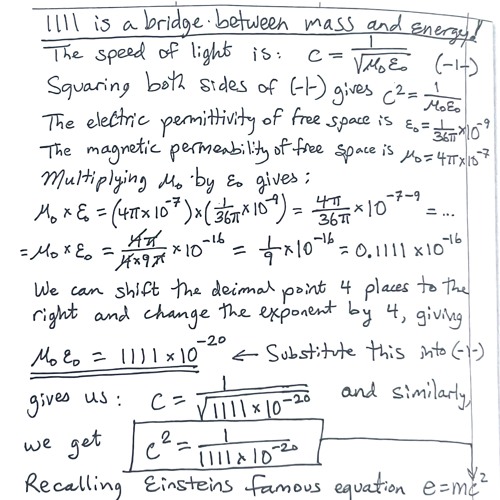 1111 is a bridge between mass and energy!
The speed of light is: c = 1/√μ₀ε₀ (-1-)
Squaring both sides of (-1-) gives c² = 1/μ₀ε₀
The electric permittivity of free space is ε₀ = 1/36π × 10⁻⁹
The magnetic permeability of free space is μ₀ = 4π × 10⁻⁷
Multiplying μ₀ by ε₀ gives:
μ₀ × ε₀ = (4π × 10⁻⁷) × (1/36π × 10⁻⁹) = 4π/36π × 10⁻⁷⁻⁹ = ...
= μ₀ × ε₀ = 4π/4×9π × 10⁻¹⁶ = 1/9 × 10⁻¹⁶ = 0.1111 × 10⁻¹⁶
We can shift the deimal point 4 places to the
right and change the exponent by 4, giving
μ₀ε₀ = 1111 × 10⁻²⁰ ← Substitute this into (-1-)
gives us: c = 1/√1111 × 10⁻²⁰ and similarly,
we get c² = 1/1111 × 10⁻²⁰
Recalling Einsteins famous equation e=mc²